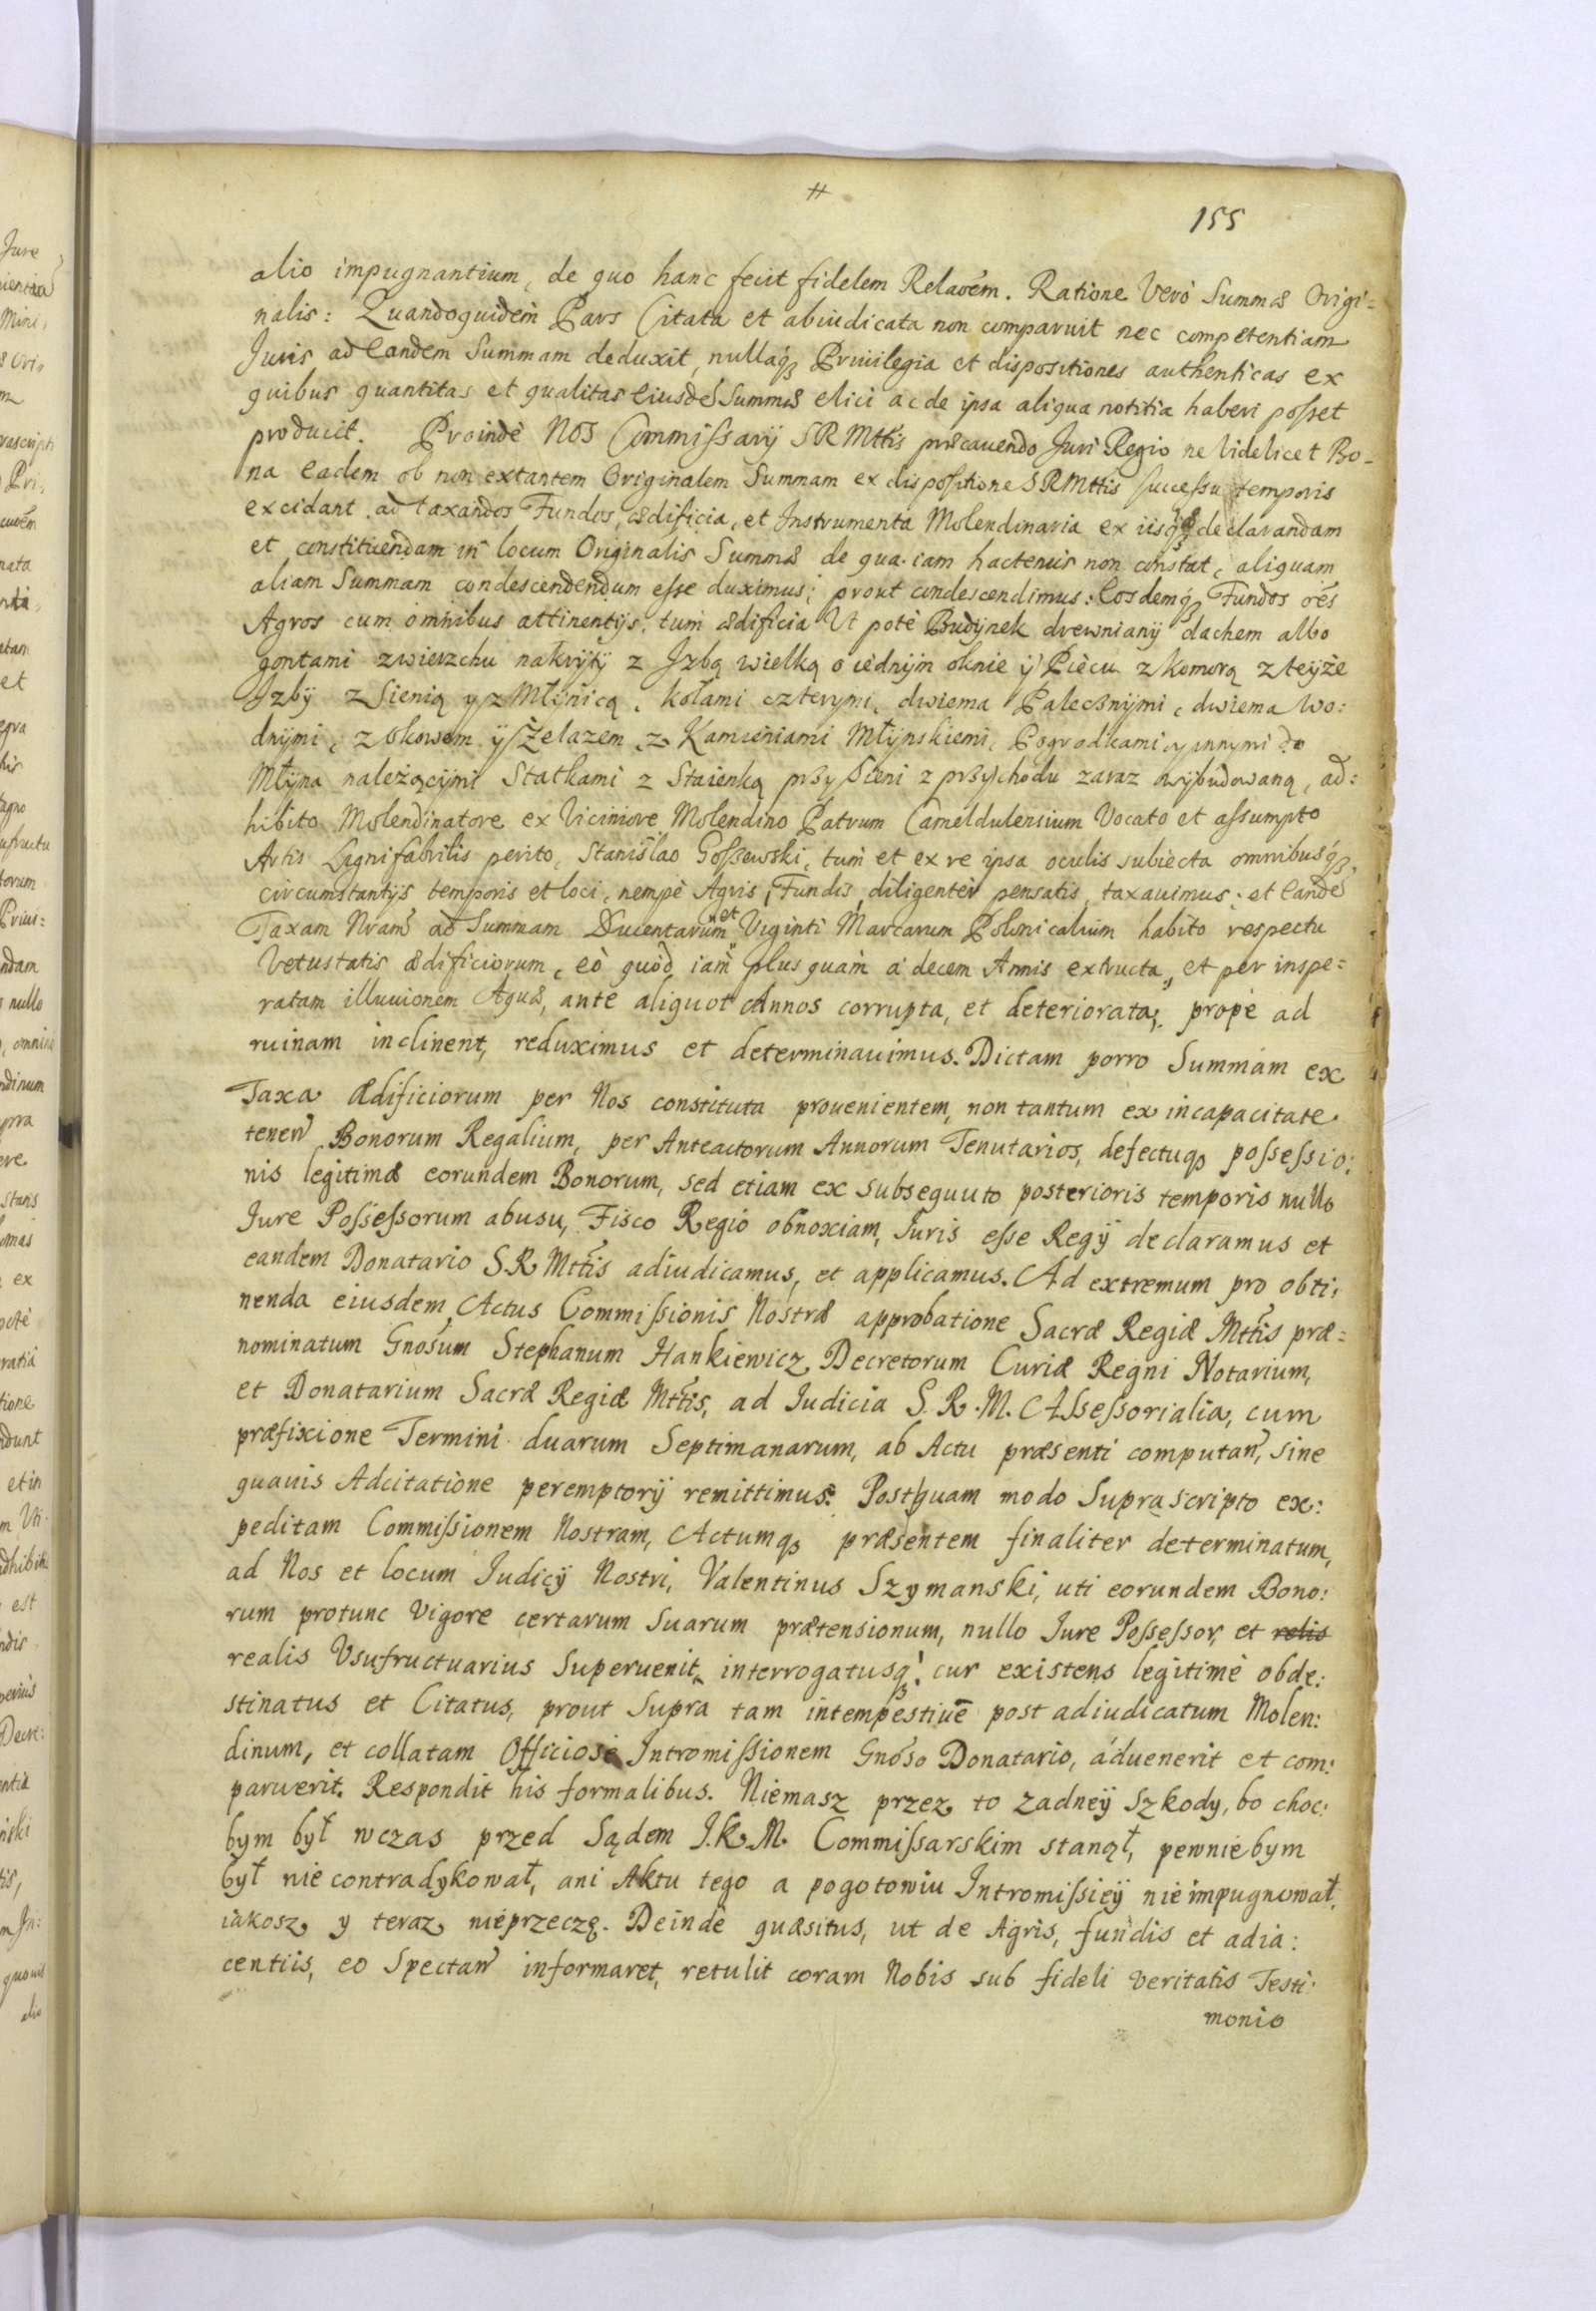 #
155
alio impugnantium, de quo hanc fecit fidelem Relaoēm. Ratione Verò Summæ Origi=
nalis: Quandoquidem Pars Citata et abiudicata non comparuit nec competentiam
Juris ad Eandem Summam deduxit, nullaq́ꝫ Priuilegia et dispositiones authenticas ex
quibus quantitas et qualitas Eiusdē Summæ elici ac de ipsa aliqua notitia haberi poſset
producit. Proindè NOS Commiſsarÿ SRMttis præcauendo Juri Regio ne Videlicet Bo-
na Eadem ob non extantem Originalem Summam ex dispositione SRMttis Succeſsu temporis
excidant ad taxandos Fundos, ædificia, et Instrumenta Molendinaria ex iisq́ꝫ declarandam
et constituendam in locum Originalis Summæ de qua iam hactenus non constat, aliquam
aliam Summam condescendendum eſse duximus; prout condescendimus: Eosdemq́ꝫ Fundos oēs
Agros cum omnibus attinentÿs, tum ædificia Ut potè Budÿnek drewnianÿ dachem albo
gontami zwierzchu nakrÿtÿ z Jzbą wielką o iednÿm oknie ÿ Piecu z komorą z teÿże
Jzbÿ z Sienią y z Młÿnicą, kołami czterymi, dwiema Palecznÿmi, dwiema Wo:
dnÿmi, z okowem ÿ Żelazem, z Kamieniami Młÿnskiemi, Pogrodkami, y innymi do
Młÿna należącÿmi Statkami z Staienką przy Sieni z przychodu zaraz wÿbudowaną, ad:
hibito Molendinatore ex Viciniore Molendino Patrum Cameldulensium Vocato et aſsumpto
Artis Lignifabrilis perito, Stanislao Goſsewski, tum et ex re ipsa oculis subiecta omnibusq́ꝫ
circumstantÿs temporis et loci, nempè Agris, Fundis, diligentèr pensatis, taxauimus: et Eandē
Taxam Nram̃ ad Summam Ducentarum et Viginti Marcarum Polonicalium habito respectu
Vetustatis ædificiorum, eò quòd iam plus quam à decem Annis extructa, et per inspe:
ratam illuuionem Aquæ, ante aliquot Annos corrupta, et deteriorata, propè ad
ruinam inclinent, reduximus et determinauimus. Dictam porro Summam ex
Taxa Ædificiorum per Nos constituta prouenientem, non tantum ex incapacitate
tenen̄ Bonorum Regalium, per Anteactorum Annorum Tenutarios, defectuqꝫ poſseſsio:
nis legitimæ eorundem Bonorum, sed etiam ex subsequuto posterioris temporis nullo
Jure Poſseſsorum abusu, Fisco Regio obnoxiam, Juris eſse Regÿ declaramus et
eandem Donatario S.R. Mttis adiudicamus, et applicamus. Ad extremum pro obti:
nenda eiusdem Actus Commiſsionis Nostræ approbatione Sacræ Regiæ Mttis præ=
nominatum Gnōsum Stephanum Hankiewicz Decretorum Curiæ Regni Notarium,
et Donatarium Sacræ Regiæ Mttis, ad Judicia S. R. M. Aſseſsorialia, cum
præfixione Termini duarum Septimanarum, ab Actu præsenti computan̄, sine
quauis Adcitatione peremptorÿ remittimus. Postquam modo Suprascripto ex:
peditam Commiſsionem Nostram, Actumqꝫ præsentem finaliter determinatum,
ad Nos et locum Judicÿ Nostri, Valentinus Szymanski, uti eorundem Bono:
rum protunc Vigore certarum Suarum prætensionum, nullo Jure Poſseſsor, et relis
realis Usufructuarius Superuenit, interrogatusqꝫ, cur existens legitimè obde:
stinatus et Citatus, prout Supra tam intempestiuē post adiudicatum Molen:
dinum, et collatam Officiosè Intromiſsionem Gnōso Donatario, aduenerit et com:
paruerit. Respondit his formalibus. Niemasz przez to zadneÿ Szkody, bo choc:
bym był wczas przed Sądem J.K.M. Commiſsarskim stanął, pewniebym
był nie contradykował, ani Aktu tego a pogotowiu Intromiſsieÿ nie impugnował,
iakosz y teraz nieprzeczę. Deindè quæsitus, ut de Agris, fundis et adia:
centiis, eo Spectan̄ informaret, retulit coram Nobis sub fideli veritatis Testi:
monio